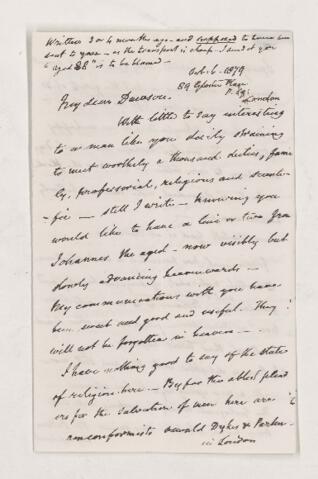 Written 3 or 4 months ago - and supposed to have been
sent to you - as the transport is cheap I send it you
"aged 88" is to be blamed -
Oct. 6. 1879
89 Upton Place
London
My dear Dawson.
With little to say interesting
to a man like you daily straining
to meet worthily a thousand duties, fami
ly, professorial, religious and scienti-
fic - still I write - knowing you
would like to have a line or two from
Johannes the aged - now visibly but
slowly advancing heavenwards -
My communications with you have
been sweet and good and useful. They
will not be forgotten in heaven -
I have nothing good to say of the state
of religion here - By far the ablest plead
ers for the salvation of men here are
nonconformists Oswald Dykes & Parker
in London